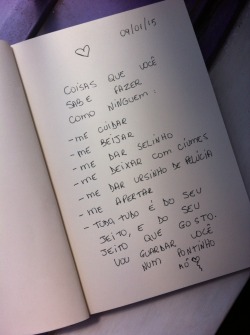 09/01/15
COISAS QUE VOCÊ
SABE FAZER
COMO NINGUEM:
-ME CUIDAR
-ME BEIJAR
-ME DAR SELINHO
-ME DEIXAR COM CIUMES
-ME DAR URSINHO DE PELÚCIA
-ME APERTAR
-TUDO, TUDO É DO SEU
JEITO, E DO SEU
JEITO QUE GOSTO.
VOU GUARDAR VOCÊ
NUM POTINHO